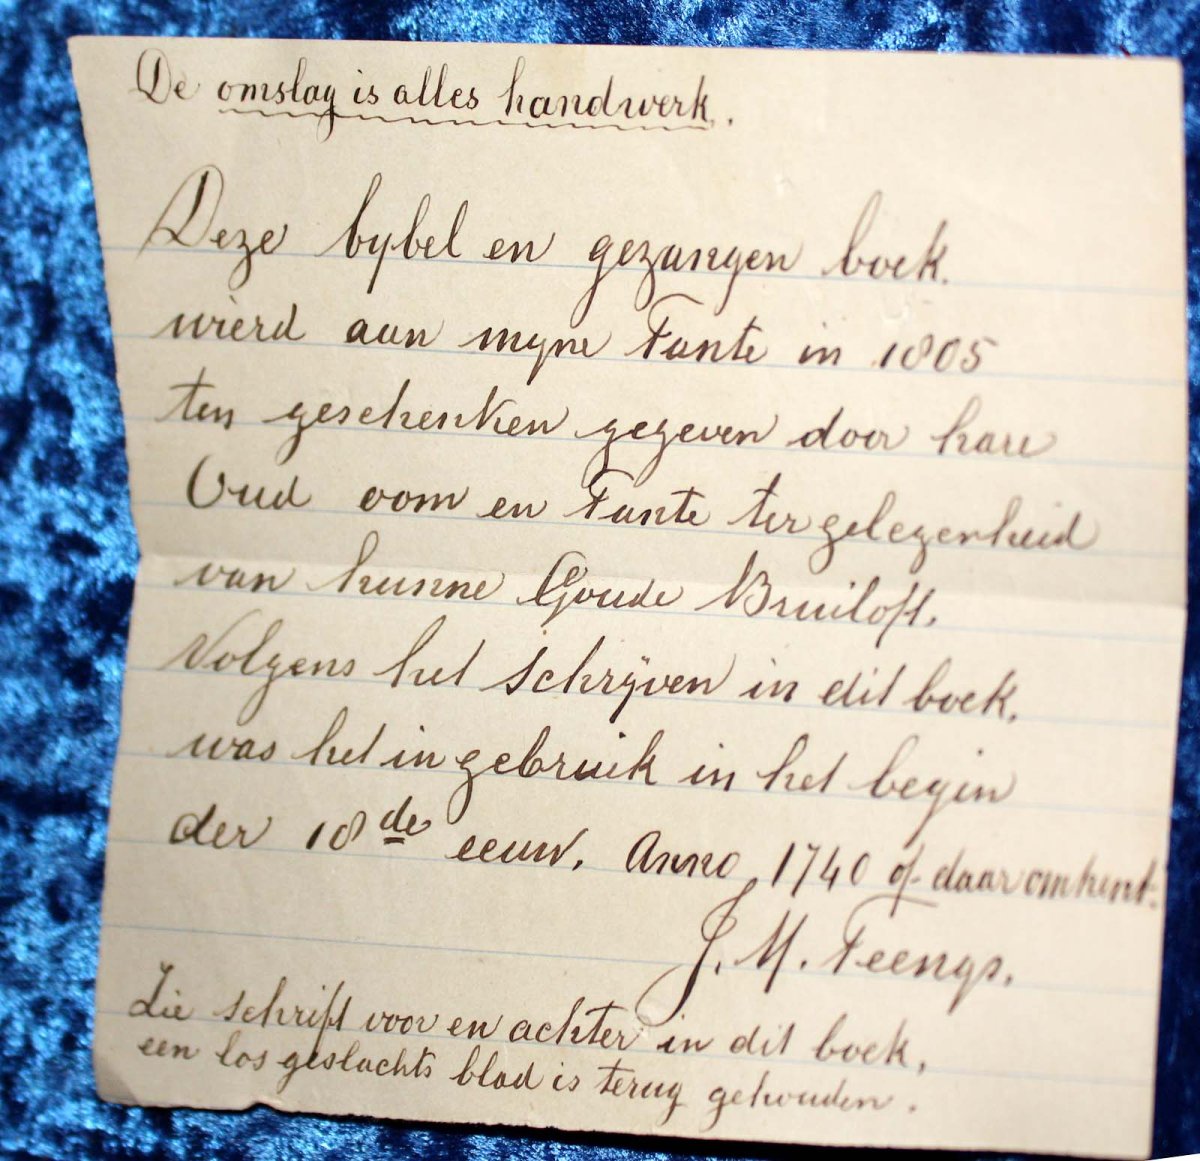 De omslag is alles handwerk.
Deze bybel en gezangen boek.
wierd aan myne Tante in 1805
ten geschenken gegeven door hare
Oud oom en Tante ter gelegenheid
van hunne Goude Bruiloft.
Volgens het schrijven in dit boek.
was het in gebruik in het begin
der 18de eeuw. Anno 1740 of daaromtrent.
J. M. Teengs.
Zie schrift voor en achter in dit boek,
een los geslachts blad is terug gehouden.